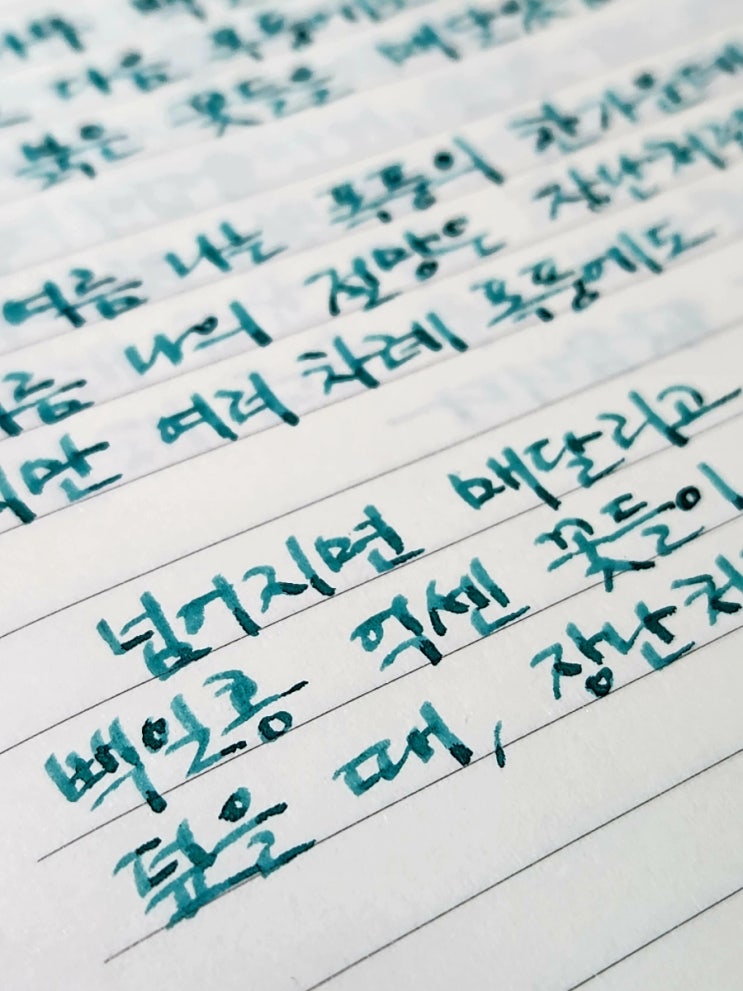 다음 폭풍에도
붉은 꽃들을 매달았
여름 나는 폭풍의 한가운데
여름 나의 절망은 장난처럼
지만 여러 차례 폭풍에도
넘어지면 매달리고
백일홍 억센 꽃들이
덮을 때, 장난처